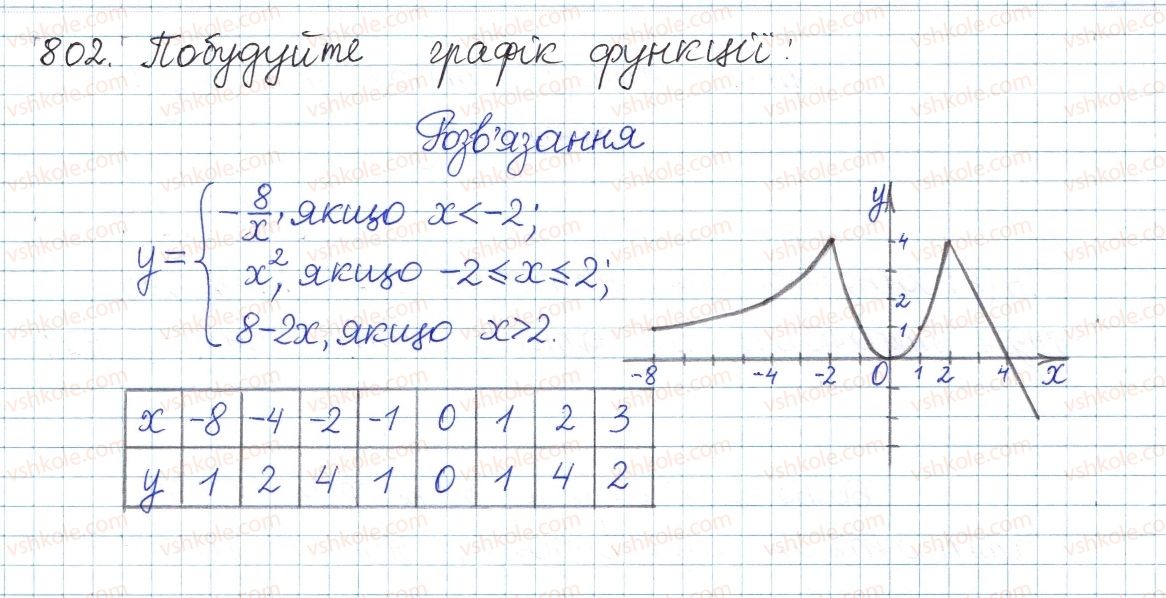 802. Побудуйте графік функції:
Розв'язання
y = { -8/x, якщо x < -2;
x², якщо -2 ≤ x ≤ 2;
8-2x, якщо x > 2.
x -8 -4 -2 -1 0 1 2 3
y 1 2 4 1 0 1 4 2
y
4
2
1
-8 -4 -2 0 1 2 4 x
vshkole.com